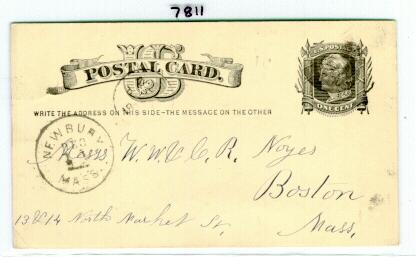 7811
U.S. POSTAGE
US
POSTAL CARD.
ONE CENT
WRITE THE ADDRESS ON THIS SIDE-THE MESSAGE ON THE OTHER
NEWBURY
MASS.
Messrs. W. W & C. R. Noyes
Boston
13 & 14 North Market St. Mass.